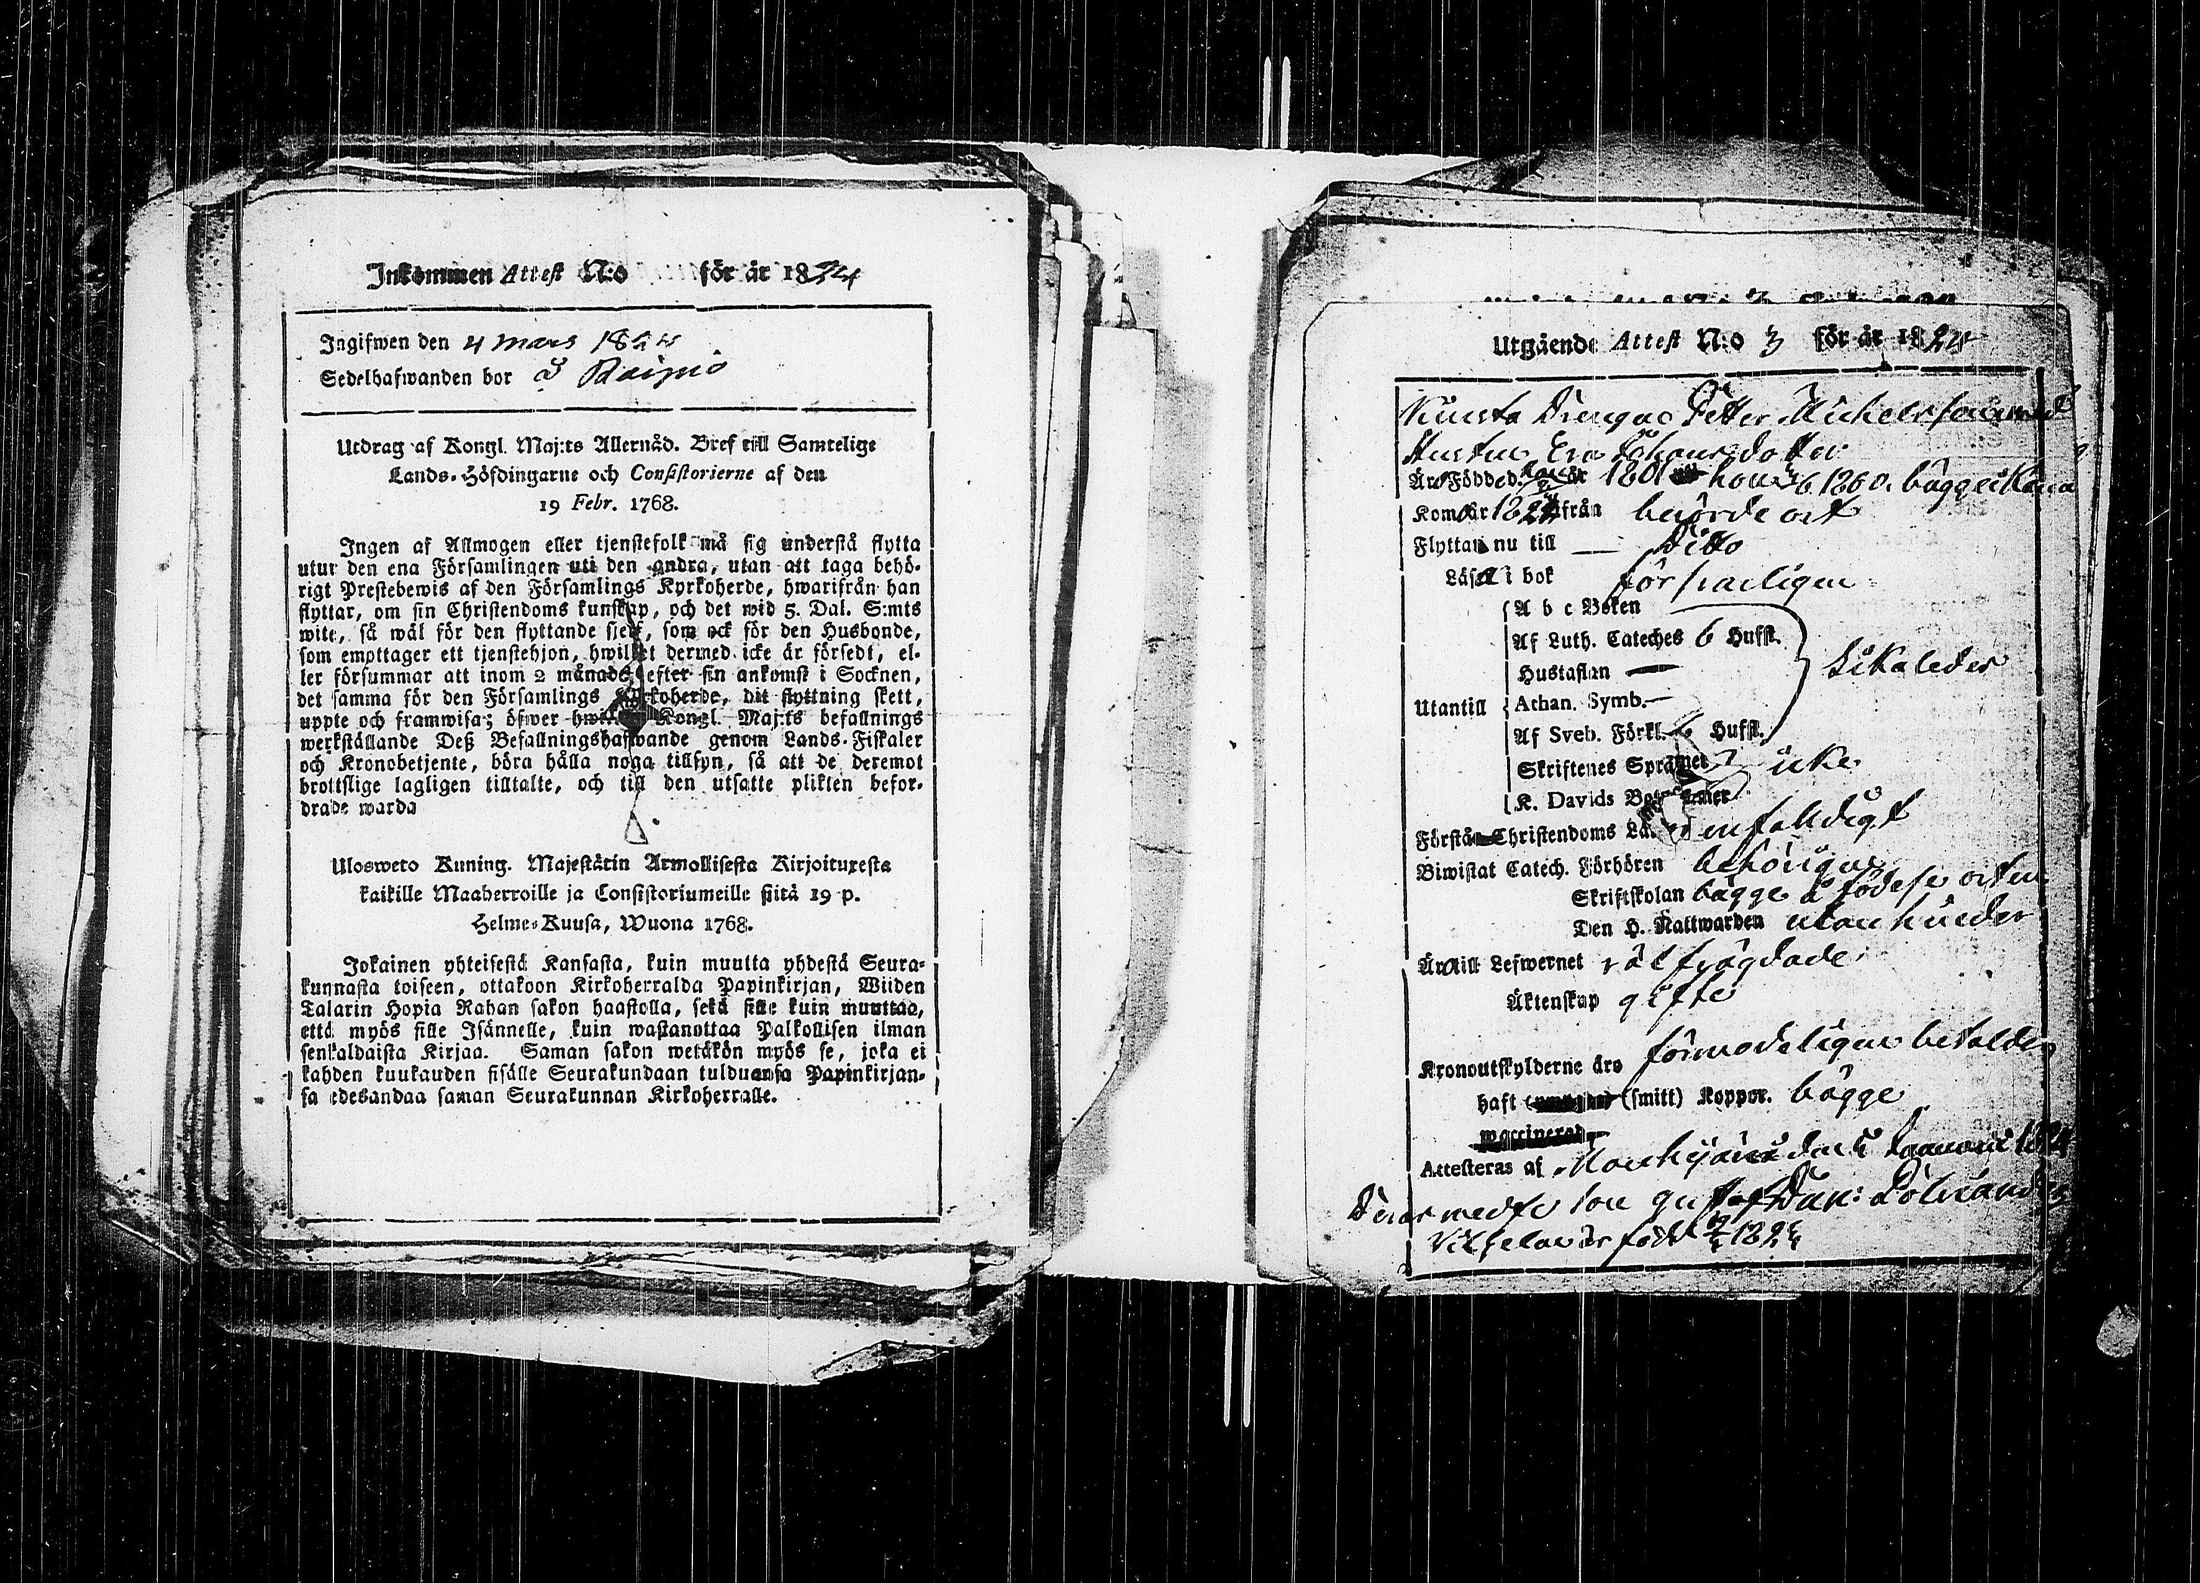 Inkommen Attest N:o för år 1824
Ingifwen den 4 Mars 1824
Sedelhafwanden bor å Raipio
Utdrag af Kongl. Maj:ts Allernåd. Bref till Samtelige
Lands-Höfdingarne och Consistorierne af den
19 Febr. 1768.
Ingen af Allmogen eller tjenstefolk må sig understå flytta
utur den ena Församlingen uti den andra, utan att taga behö-
rigt Prestebewis af den Församlings Kyrkoherde, hwarifrån han
flyttar, om sin Christendoms kunskap, och det wid 5. Dal. S:mts
wite, så wäl för den flyttande sjelf, som ock för den Husbonde,
som empttager ett tjenstehjon, hwilket dermed icke är försedt, el-
ler försummar att inom 2 månader efter sin ankomst i Socknen,
det samma för den Församlings Kyrkoherde, dit flyttning skett,
uppte och framwisa; öfwer Kongl. Maj:ts befallnings
werkställande Deß Befallningshafwande genom Lands-Fiskaler
och Kronobetjente, böra hålla noga tillsyn, så att de deremot
brottslige lagligen tilltalte, och till den utsatte plikten befor-
drade warda
Ulosweto Kuning. Majestätin Armollisesta Kirjoituxesta
kaikille Maaherroille ja Consistoriumeille siitä 19 p.
Helme-Kuusa, Wuona 1768.
Jokainen yhteisestä Kansasta, kuin muutta yhdestä Seura-
kunnasta toiseen, ottakoon Kirkoherralda Papinkirjan, Wiiden
Talarin Hopia Rahan sakon haastolla, sekä sille kuin muuttaa,
että myös sille Isännelle, kuin wastanottaa Palkollisen ilman
senkaldaista Kirjaa. Saman sakon wetäkön myös se, joka ei
kahden kuukauden sisälle Seurakundaan tulduansa Papinkirjan-
sa edesandaa saman Seurakunnan Kirkoherralle.
Utgående Attest N:o 3 för år 1824
Drengac Petter Michelsson med
Hustru Eva Johansdotter
Äro Födde d. år 1801 hon 1800. bägge i
Kom år 182 ifrån berörde ort
Flyttar nu till — Ditto
Läsa i bok förswarligen
A b c Boken
Af Luth. Cateches 6 Hufst.
Hustaflan — likaledes
Utantill Athan. Symb. —
Af Sveb. Förkl. 6 Hufst.
Skriftenes Språket icke
K. Davids
Förstå Christendoms Lä. enfaldigt
Biwistat Catech. Förhören behörigen
Skriftskolan bägge å födelse orten
Den H. Nattwarden utan hinder
Äro till Lefwernet välfrägdade
Äktenskap gifte
Kronoutskylderne äro förmodeligen betalde
haft (smitt) koppor. bägge
waccinerad
Attesteras af den 5 Januarii
son Gustaf
född